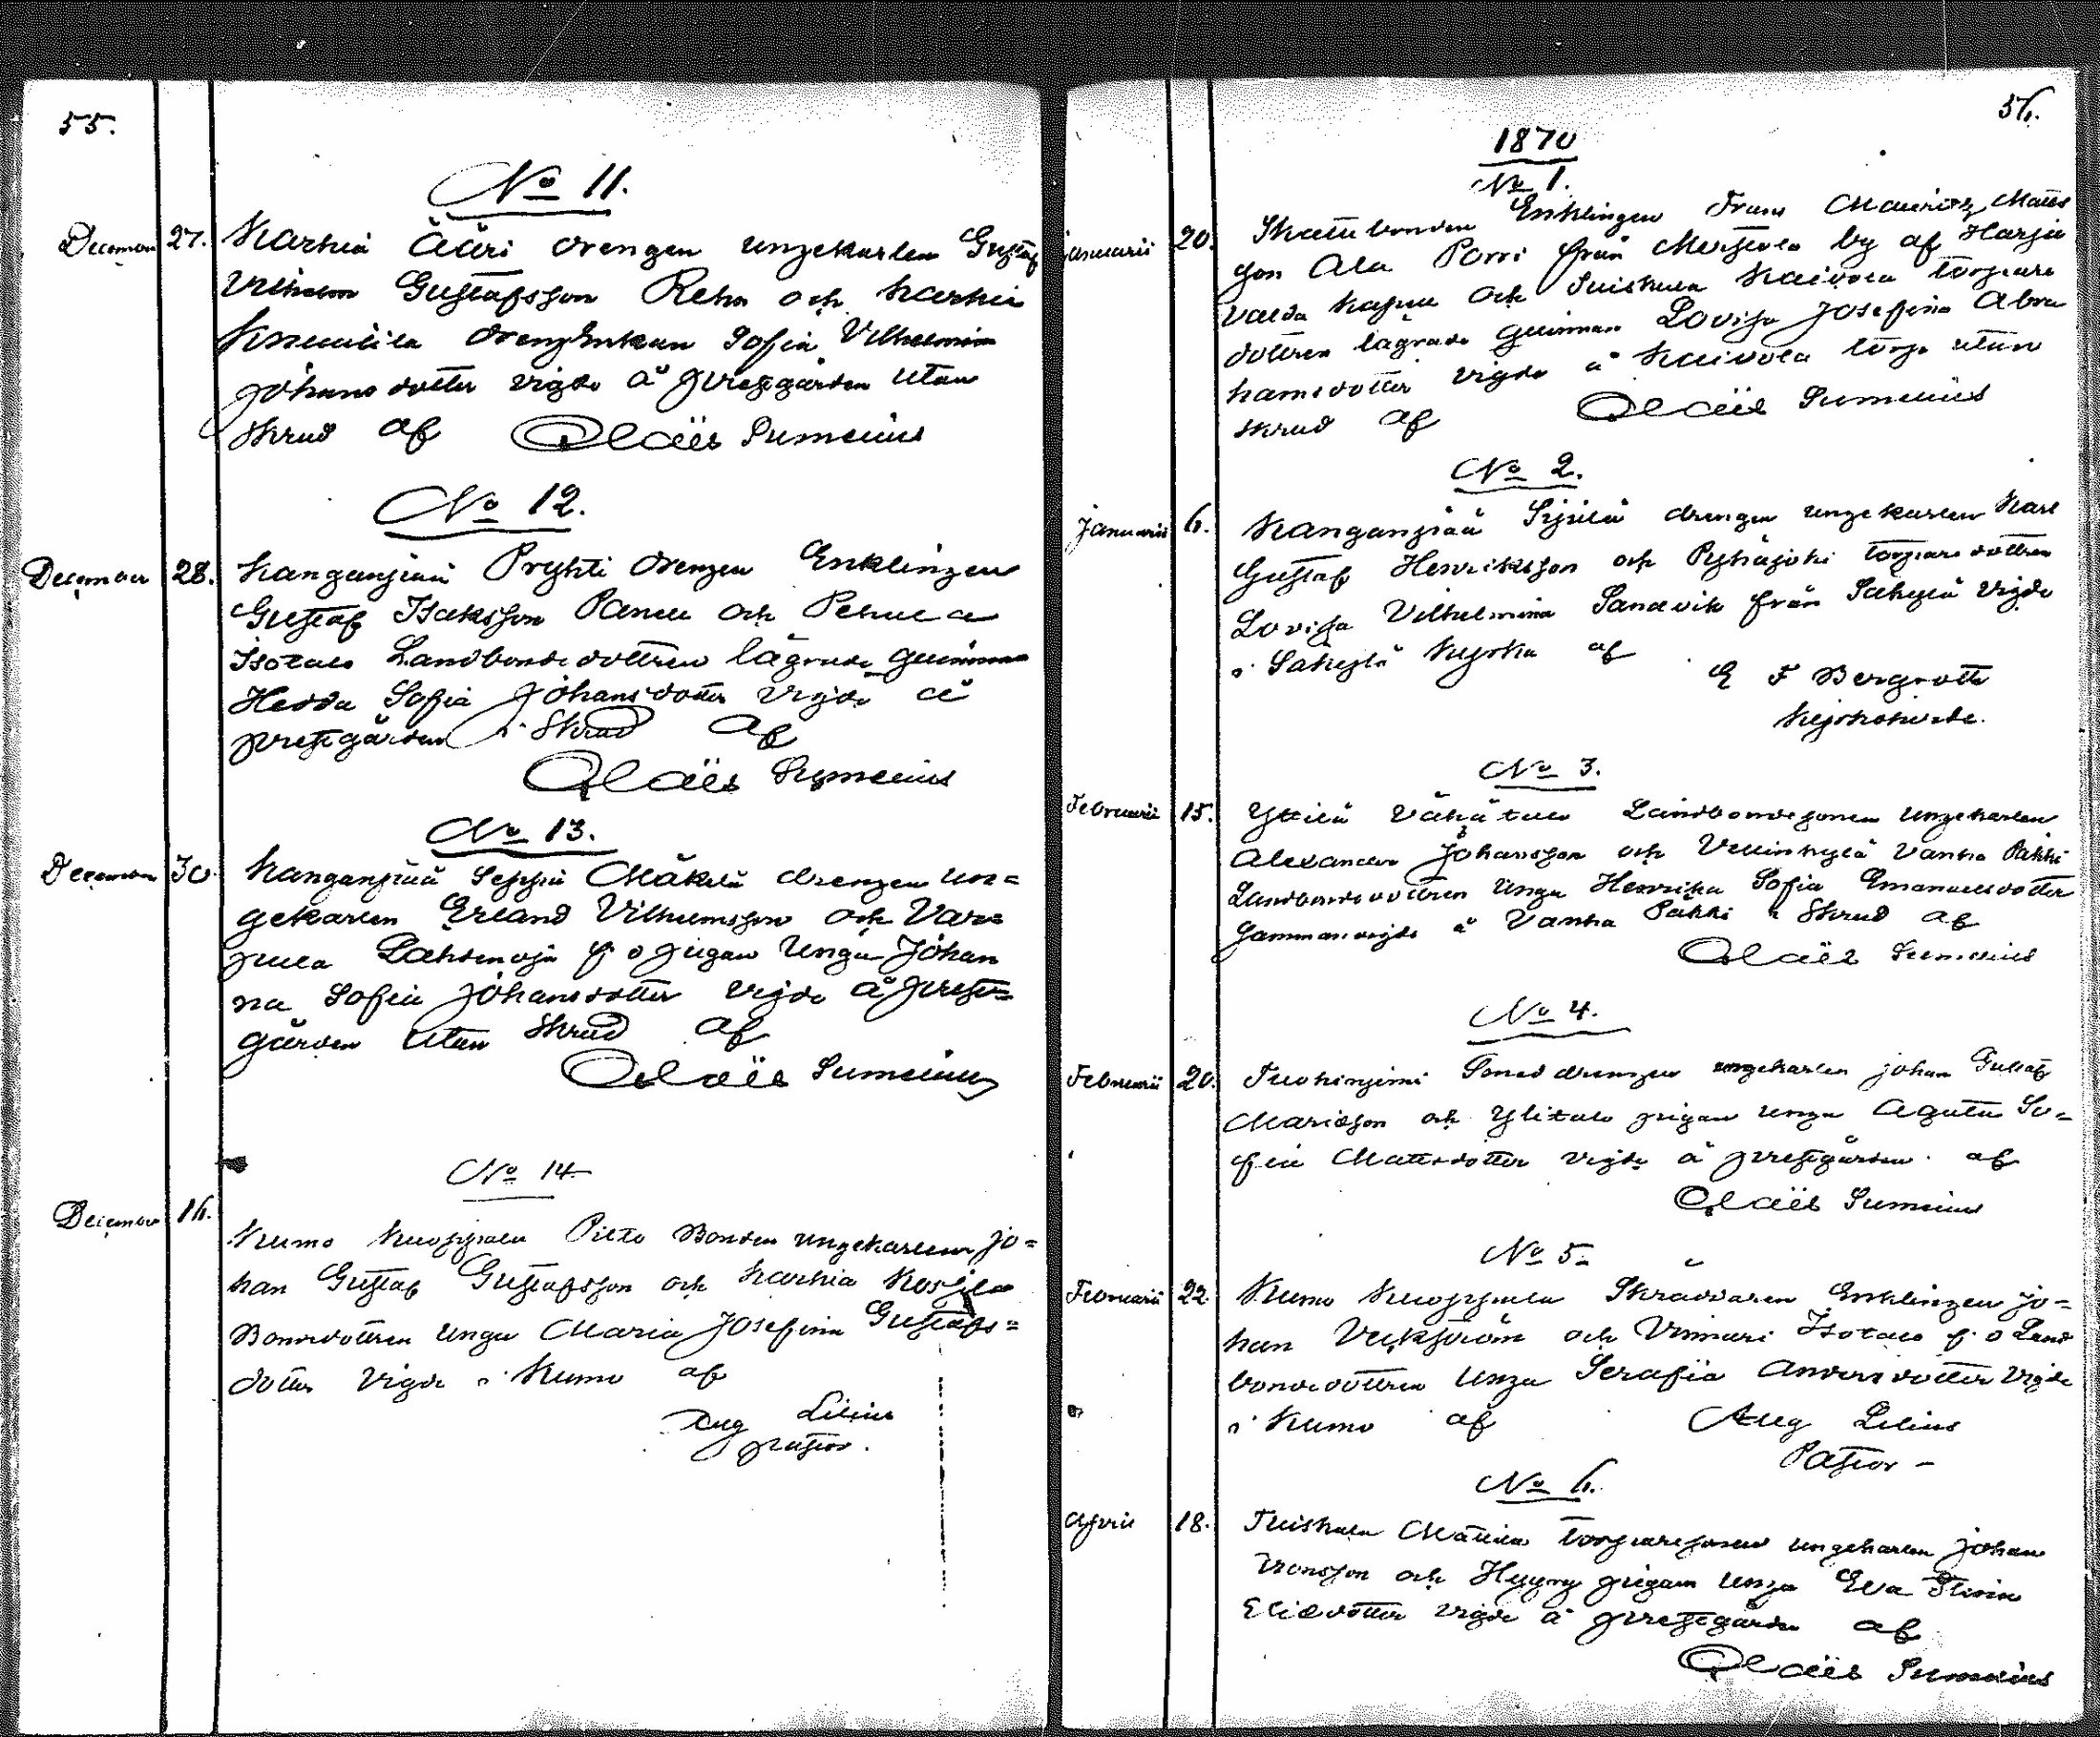 55.
No 11.
December 27. Karhia Ääri drengen ungekarlen Gustaf
Vilhelm Gustafsson Rehn och Karhia
drengenkan Sofia Vilhelmina
Johansdotter vigde å prestgården utan
skrud af Claës Sumelius
No 12.
December 28. Kanganpää Prykti drengen Enklingen
Gustaf Isaksson Panu och
Isotalo Landbondedottren lägrade quinnan
Hedda Sofia Johansdotter vigde å
prestgården i Skrud af
Claës Sumelius
No 13.
December 30. Kanganpää Seppä Mäkelä drengen un=
gekarlen Erland Vilhelmsson och Vam=
pula f o pigan unga Johan
na Sofia Johansdotter vigde å prest=
gården utan Skrud af
Claës Sumelius
No 14
December 16. Kumo Kuoppala Bonden ungekarlen Jo=
han Gustaf Gustafsson och Karhia
Bondedottren unga Maria Josefina Gustafs=
dotter vigde i Kumo af
Aug Lilius
pastor.
56.
1870
No 1.
januarii 20. Skattebonden Enklingen Frans Mauritz Matts
son Ala Porri från by af Harja
valda kapell och Suiskula Kaivola torpare
dottren lägrade quinnan Lovisa Josefina Abra
hamsdotter vigde å Kaivola torp utan
skrud af Claës Sumelius
No 2.
januarii 6. Kanganpää drengen ungekarlen Karl
Gustaf Henriksson och Pyhäjoki torparedottren
Lovisa Vilhelmina Sandvik från Säkylä vigde
i Säkylä kyrka af
E F Bergroth
kyrkoherde.
No 3.
Februarii 15. Yttilä Vähätalo Landbondesonen ungekarlen
Alexander Johansson och Vanha Päkki
Landbondedottren unga Henrika Sofia Emanuelsdotter
sammanvigde å Vanha Päkki i Skrud af
Claës Sumelius
No 4.
Februarii 20. drengen ungekarlen johan Gustaf
och Ylitalo pigan unga Agata So=
fia Mattsdotter vigde å prestgården af
Claës Sumelius
No 5.
Februarii 22. Kumo Kuoppala Skräddaren Enklingen jo=
han och Vinnari Isotalo f. o Land
bondedottren unga Serafia Andersdotter vigde
i Kumo af Aug Lilius
Pastor –
No 6.
April 18. Suiskula Mattila torparesonen ungekarlen johan
och pigan unga Eva Stina
Eliædotter vigde å prestgården af
Claës Sumelius